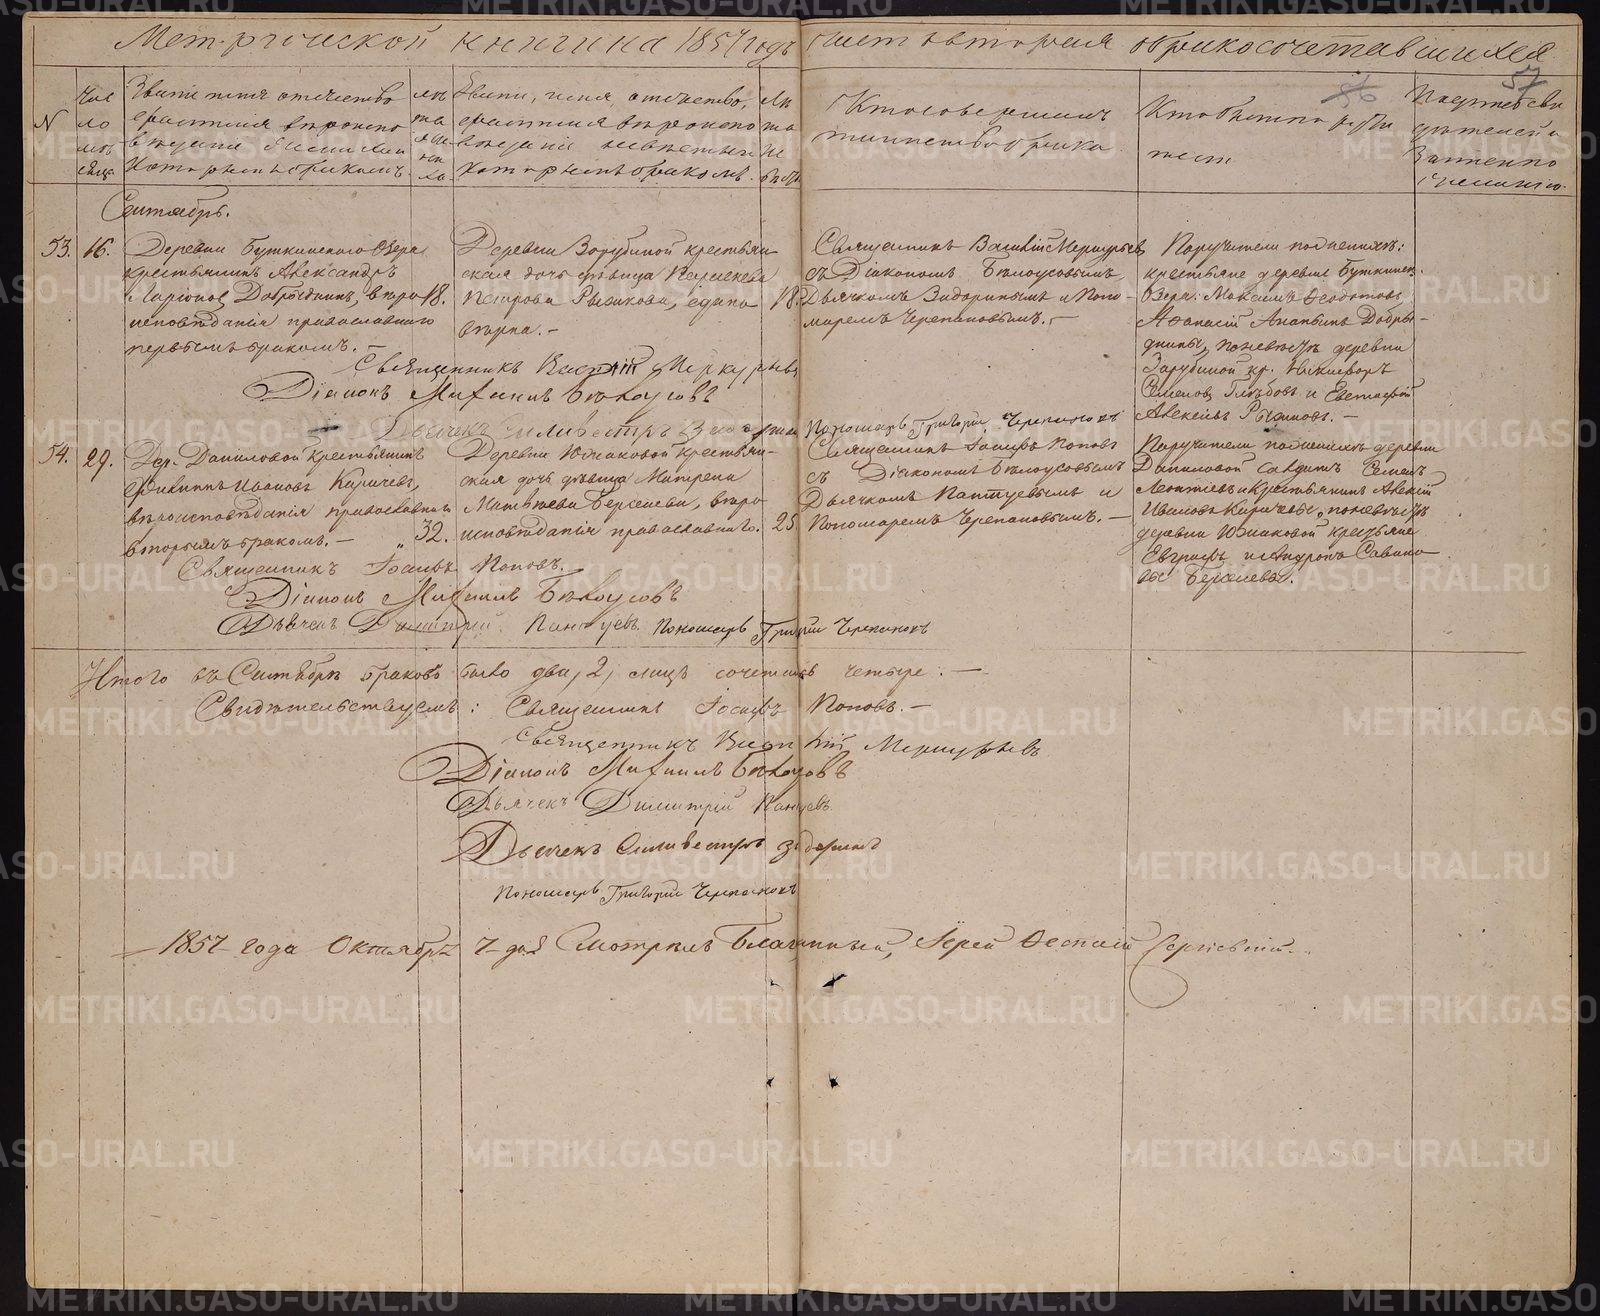 Метрической книги на 1857 годъ часть вторая о бракосочетавшихся
57
56
№
Число месяца
Званіе имя отечество
вероиспо
ведание жениха и
которымъ бракомъ.
лета жениха.
Званіе, имя, отечество,
вероиспо
ведание невесты и
которымъ бракомъ.
Кто совершалъ
таинство брака
Кто были поручи
тели
Подпись сви
детелей
Сентябрь.
53. 16. Деревни Буткинского Озера
крестьянинъ Александръ
Ларіонов Добрынинъ, веро
исповѣданія православнаго
первымъ бракомъ. —
18.
Деревни Зарубиной крестьян-
ская дочь девица
Петрова Рычкова, едино
вѣрка. —
18.
Священникъ Василій Меркурьев
съ Діакономъ Бѣлоусовымъ
Дьячкомъ Задоринымъ и Поно-
маремъ Черепановымъ. —
Поручители по женихѣ:
крестьяне деревни Буткинск.
Озера: Максимъ Феодотовъ,
Афанасій Ананьинъ Добры-
нины, по невестѣ деревни
Зарубиной кр. Никифоръ
Семенов Глебовъ и Евстафій
Алексѣевъ Рычковъ. —
Священникъ Василій Меркурьевъ
Діаконъ Михаилъ Бѣлоусовъ
Дьячекъ Силивестръ Задоринъ
Пономарь Григорій Черепановъ
54. 29. Дер. Даниловой крестьянинъ
Ивановъ Киричевъ,
вѣроисповѣданія православнаго
вторымъ бракомъ. —
32.
Деревни Южаковой крестьян-
ская дочь девица Матрена
Матвеева Берсенева, веро
исповѣданія православнаго.
25
Священникъ Іосифъ Поповъ
съ Діакономъ Бѣлоусовымъ
Дьячкомъ Пантуевымъ и
Пономаремъ Черепановымъ. —
Поручители по женихѣ деревни
Даниловой солдатъ Семенъ
Леонтіевъ и Крестьянинъ Алексій
Ивановъ Киричевы, по невестѣ
деревни Южаковой крестьяне
Евграфъ и Андронъ Савино
вы Берсеневы.
Священникъ Іосифъ Поповъ.
Діаконъ Михаилъ Бѣлоусовъ
Дьячекъ Димитрій Пантуевъ. Пономарь Григорій Черепановъ
Итого въ Сентябрѣ браковъ было два, 2, лицъ сочеталось четыре. —
Свидѣтельствуемъ: Священникъ Іосифъ Поповъ. —
Священникъ Василій Меркурьевъ
Діаконъ Михаилъ Бѣлоусовъ
Дьячекъ Димитрій Пантуевъ.
Дьячекъ Силивестръ Задоринъ
Пономарь Григорій Черепановъ
1857 года Октября 7 дня Смотрѣлъ Благочинный, Іерей Сергіевскій.
METRIKI.GASO-URAL.RU